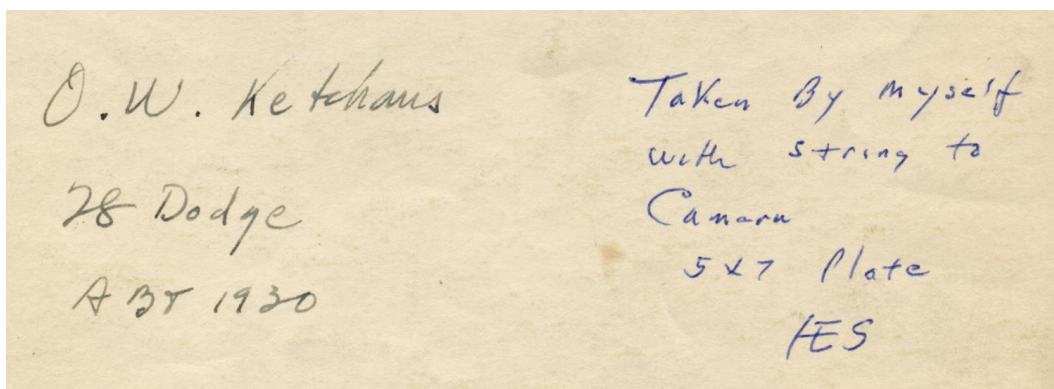 O. W. Ketchaus
28 Dodge
ABT 1930
Taken By Myself
with string to
Camara
5 x 7 Plate
HES